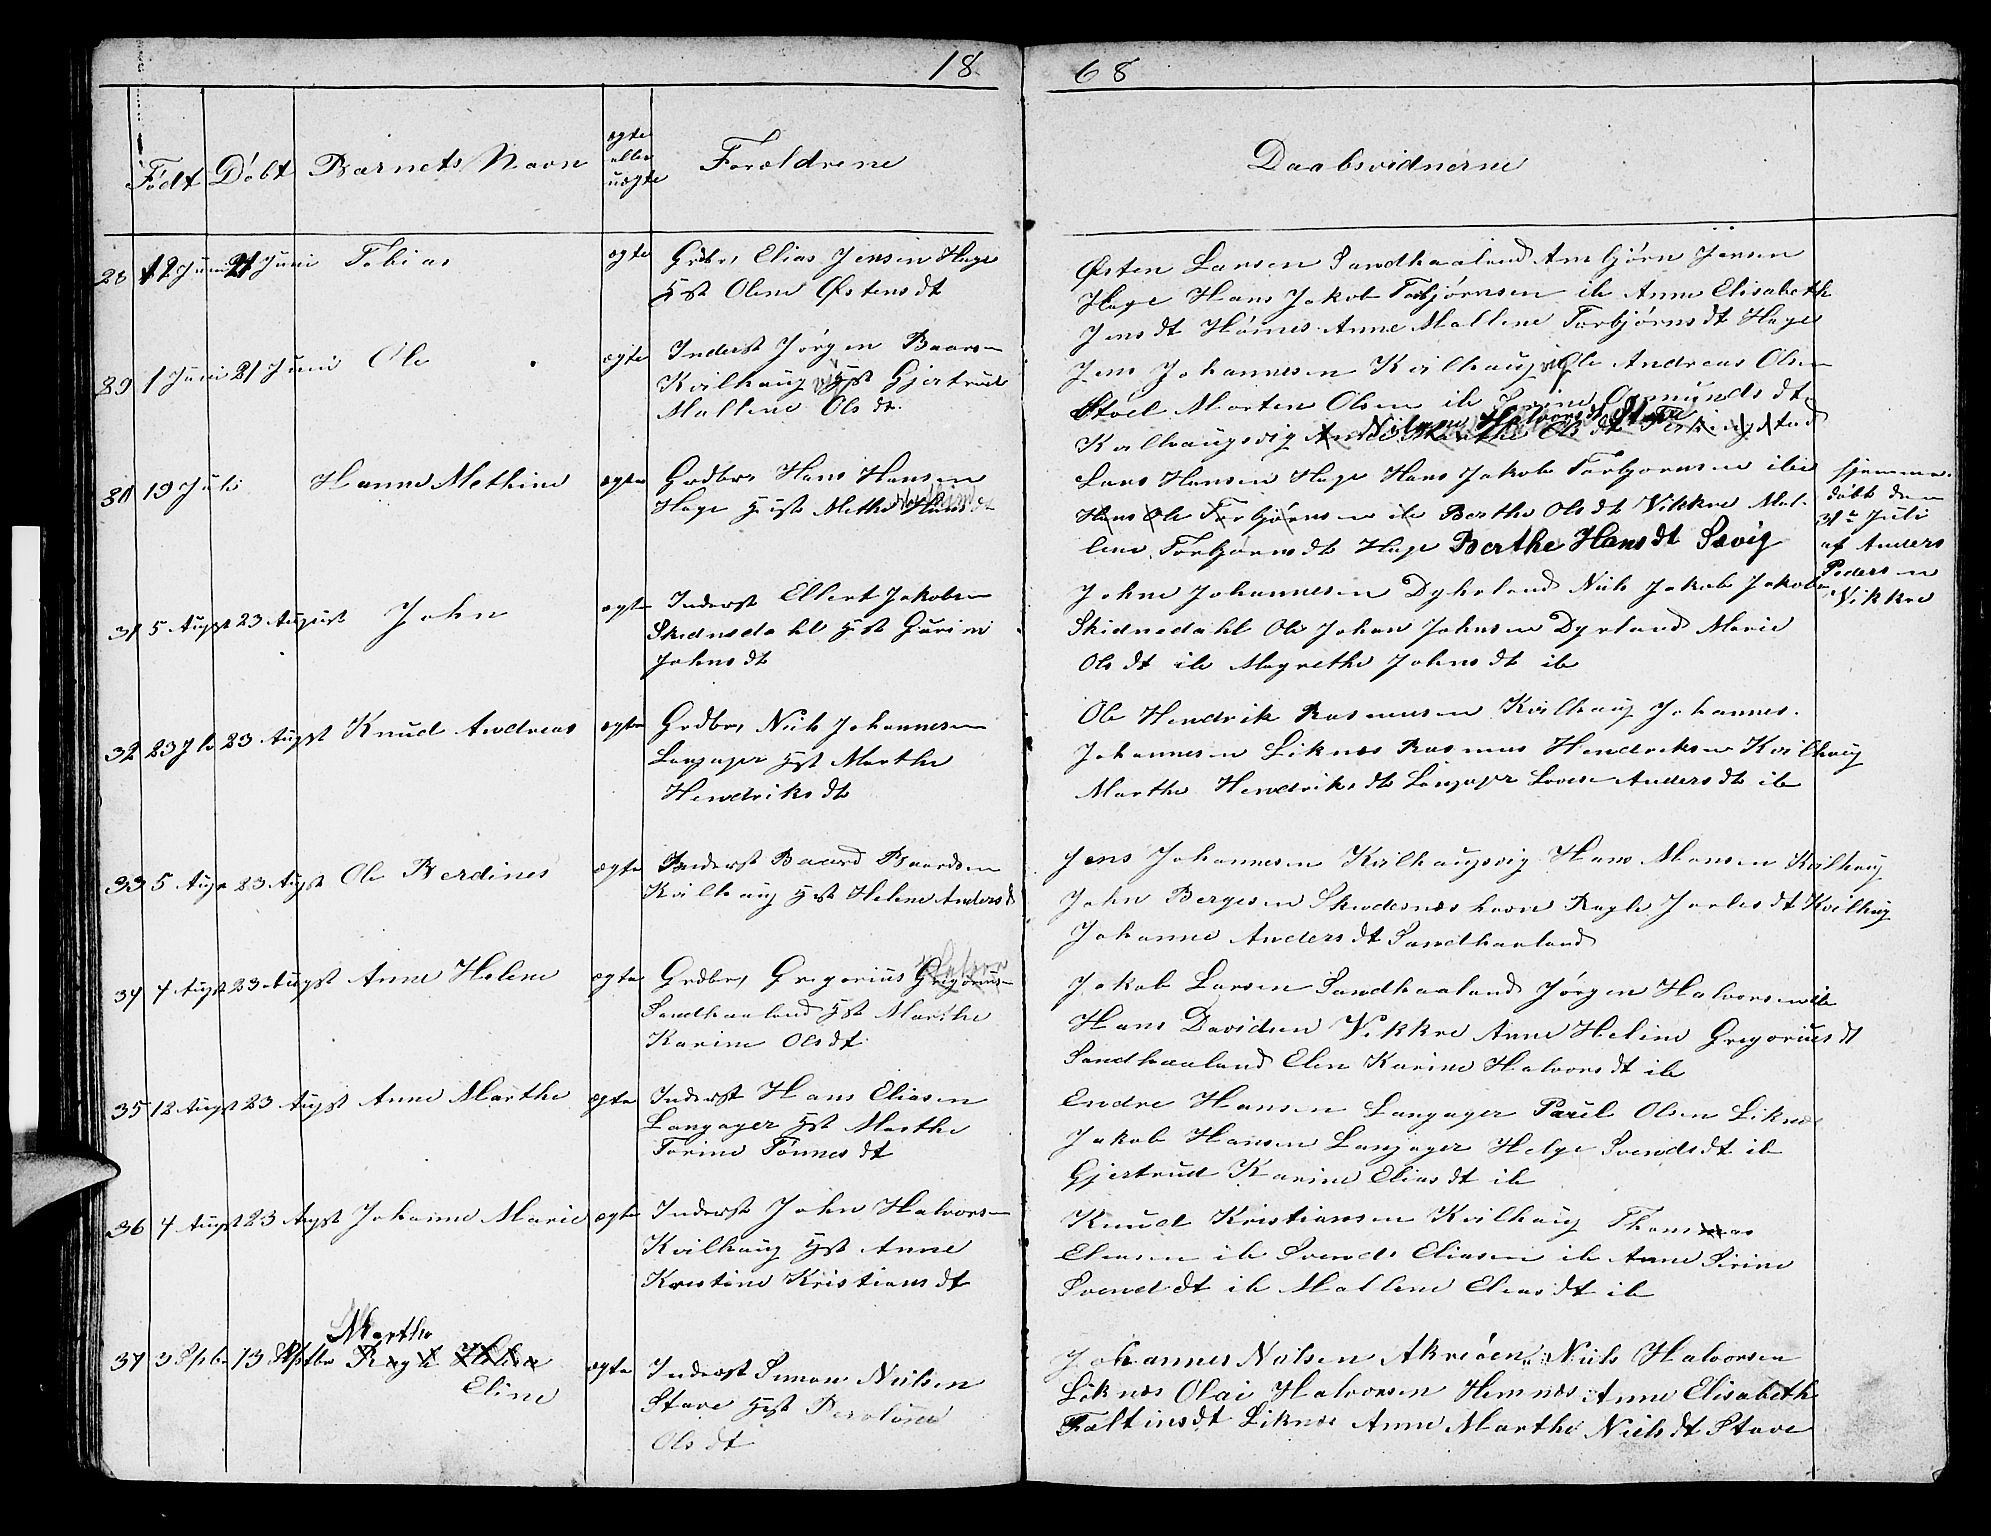 18
68
Født Døbt Barnets Navn ægte eller uægte Forældrene
Daabsvidnerne
28 12 Juni 21 Juni Tobias ægte Grdbr, Elias Jensen Hage
Hst Olene Østensdt
Østen Larsen Sandhaaland Ambjørn Jensen
Hage Hans Jakob Torbjørnsen ib Anne Elisabeth
Jensdt Hemnes Anne Mallene Torbjørnsdt Hage
29 1 Juni 21 Juni Ole ægte Inderst Jørgen Baars-
Kvilhaug Hst Gjertrud
Mallene Olsdt.
Jens Johannesen Kvilhaugvig Ole Andreas Olsen
Stoel Morten Olsen ib Serine Osmundsdt
Kvilhaugvig Anne Marthe Olsdt
30 19 Juli Hanne Methine ægte Grdbr, Hans Hansen
Hage Hst Methe Hansdt
Lars Hansen Hage Hans Jakob Torbjørnsen ibi
Hans Ole Torbjørnsen ib Berthe Olsdt Vikkre Mal-
lene Torbjørnsdt Hage Berthe Hansdt Sævig
hjemme-
døbt den
31te Juli
af Anders
Pedersen
Vikkre
31 5 Augst 23 August John ægte Inderst Ellert Jakobsen
Skidnedahl Hst Gurine
Johnsdt
Johne Johannesen Dyhrland Niels Jakob Jakobs-
Skidnedahl Ole Johan Johnsen Dyrland Marie
Olsdt ib Magrethe Johnsdt ib
32 23 Jli 23 Augst Knud Andreas ægte Grdbr, Niels Johannesen
Langager Hst Marthe
Hendriksdt
Ole Hendrik Rasmusen Kvilhaug Johannes
Johannesen Liknes Rasmus Hendriksen Kvilhaug
Marthe Hendriksdt Langager Lovise Andersdt ib
33 5 Augs 23 Augst Ole Berdines ægte Inderst Baard Baardsen
Kvilhaug Hst Helene Andersdt
Jens Johannesen Kvilhaugvig Hans Monsen Kvilhaug
John Bergesen Skudesneshavn Ragle Jarlesdt Kvilhaug
Johanne Andersdt Sandhaaland
34 4 Augst 23 Augst Anne Helene ægte Grdbr, Gregorius Gregorius-
Sandhaaland Hst Marthe
Karine Olsdt
Jakob Larsen Sandhaaland Jørgen Halvorsen ib
Hans Davidsen Vikkre Anne Heline Gregoriusdt
Sandhaaland Elen Karine Halvorsdt ib
35 12 Augst 23 Augst Anne Marthe ægte Inderst Hans Eliasen
Langager Hst Marthe
Torine Tønnesdt
Endre Hansen Langager Paul Olsen Liknes
Jakob Hansen Langager Helge Svendsdt ib
Gjertrud Karine Eliasdt ib
36 4 Augst 23 Augst Johanne Marie ægte Inderst John Halvorsen
Kvilhaug Hst Anne
Kristine Kristiansdt
Knud Kristiansen Kvilhaug Thomas
Eliasen ib Svend Eliasen ib Anne Sirine
Svendsdt ib Mallene Eliasdt ib
Marthe
37 3 Spbr 13 Sptbr Ragle Helene ægte Inderst Simon Nielsen
Eline
Stave Hst Beroline
Olsdt
Johannes Nilsen Akreøen Niels Halvorsen
Liknes Olai Halvorsen Hemnes Anne Elisabeth
Faltinsdt Liknes Anne Marthe Nielsdt Stave